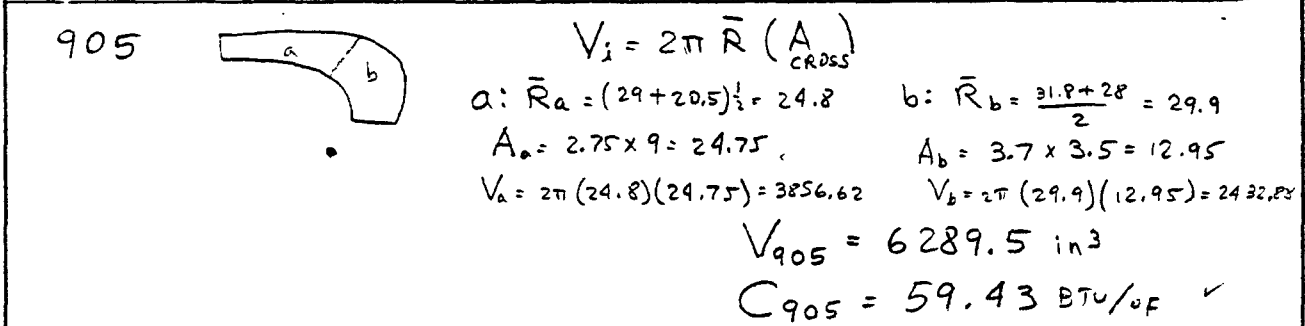 905
a
b
V_i = 2π R̄ (A_CROSS)
a: R̄a = (29+20.5)½ = 24.8   b: R̄b = 31.8+28/2 = 29.9
Aa = 2.75 x 9 = 24.75,   Ab = 3.7 x 3.5 = 12.95
Va = 2π (24.8)(24.75) = 3856.62   Vb = 2π (29.9)(12.95) = 2432.88
V905 = 6289.5 in3
C905 = 59.43 BTU/°F ✓